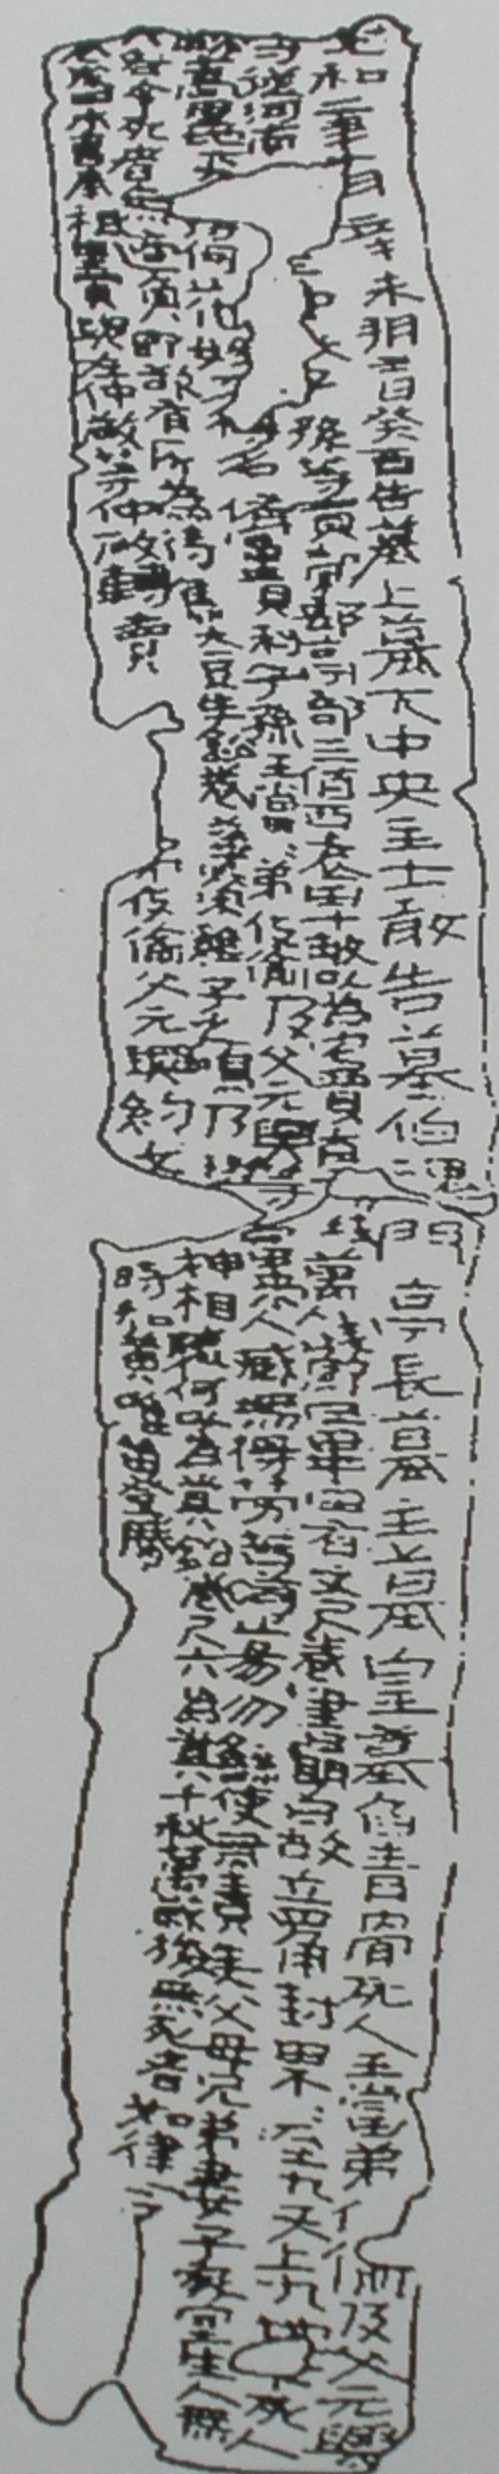 光和二年十月辛未朔三日癸酉告墓上墓下中央主士敢告墓伯魂門亭長墓主墓皇墓臽青骨死人王當弟伎偷及父元興
等從河南 子孫等買穀郟亭部三佰西袁田十畝以為宅賈直錢萬錢即日畢田有丈尺券書明白故立四角封界界至九天上九地下死人
歸蒿里地下 何 姓 佑富貴利子孫王當當弟伎偷及父元興等當來人臧無得勞苦苛止易勿繇使無責生人父母兄弟妻子家室生人無
責各令死者無適負即欲有所為待焦大豆生鉛券華榮雞子之鳴乃與神相聽何以為真鉛券尺六為真千秋萬歲後無死者如律令
券成田本曹奉祖田賣與左仲敬等仲敬轉賣 弟伎偷父元興約文 時知黃唯留登勝